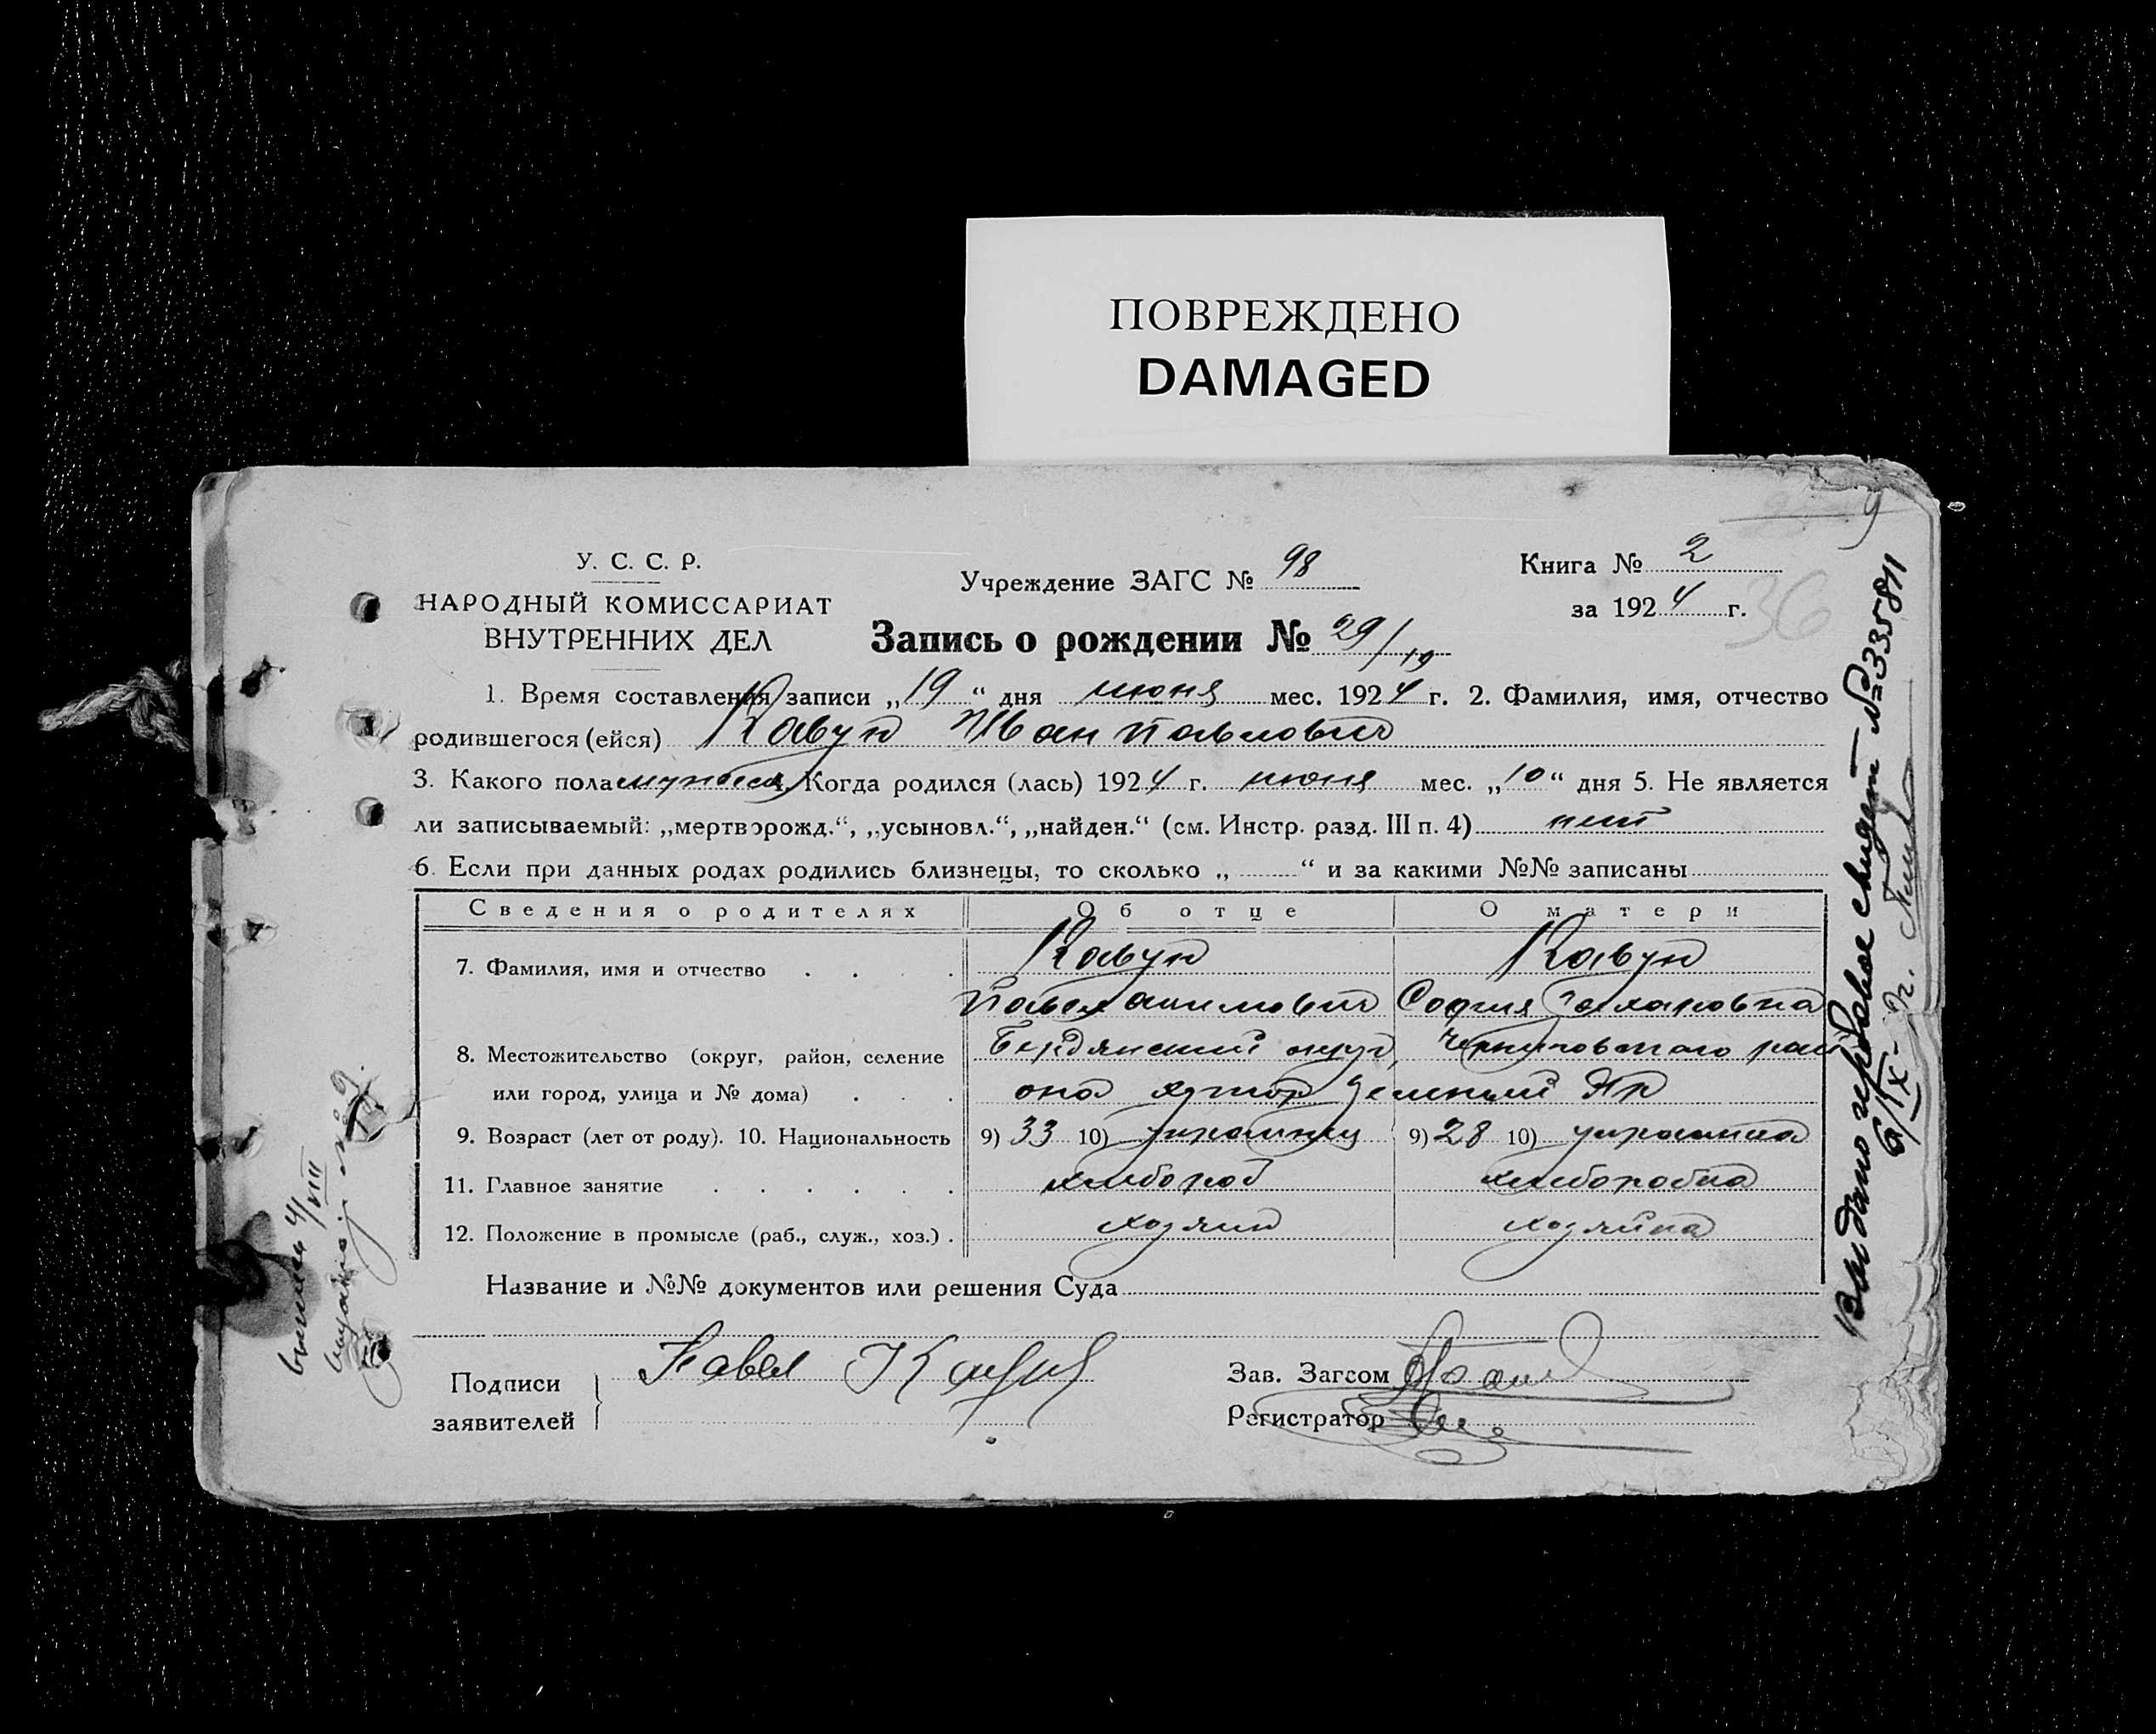 ПОВРЕЖДЕНО
DAMAGED
У. С. С. Р.
НАРОДНЫЙ КОМИССАРИАТ
ВНУТРЕННИХ ДЕЛ
Учреждение ЗАГС № 98
Книга № 2
за 1924 г.
36
Запись о рождении № 29/19
1. Время составления записи „19“ дня июня мес. 1924 г. 2. Фамилия, имя, отчество
родившегося (ейся) Кавун Иван Павлович
3. Какого пола мужеск. Когда родился (лась) 1924 г. июня мес. „10“ дня 5. Не является
ли записываемый: „мертворожд.“, „усыновл.“, „найден.“ (см. Инстр. разд. III п. 4) нет
6. Если при данных родах родились близнецы, то сколько „ “ и за какими №№ записаны
Сведения о родителях Об отце О матери
7. Фамилия, имя и отчество Кавун Кавун
Павел Акимович София Захаровна
8. Местожительство (округ, район, селение Бердянский округ, Черниговского рай
или город, улица и № дома) она хутор Зеленый Яр
9. Возраст (лет от роду). 10. Национальность 9) 33 10) украинец 9) 28 10) украинка
11. Главное занятие хлебороб хлеборобка
12. Положение в промысле (раб., служ., хоз.) хозяин хозяйка
Название и №№ документов или решения Суда
Подписи
заявителей
Павел Кавун
Зав. Загсом
Регистратор
Выдано первое свидет № 335811
9/IX-
4/VIII